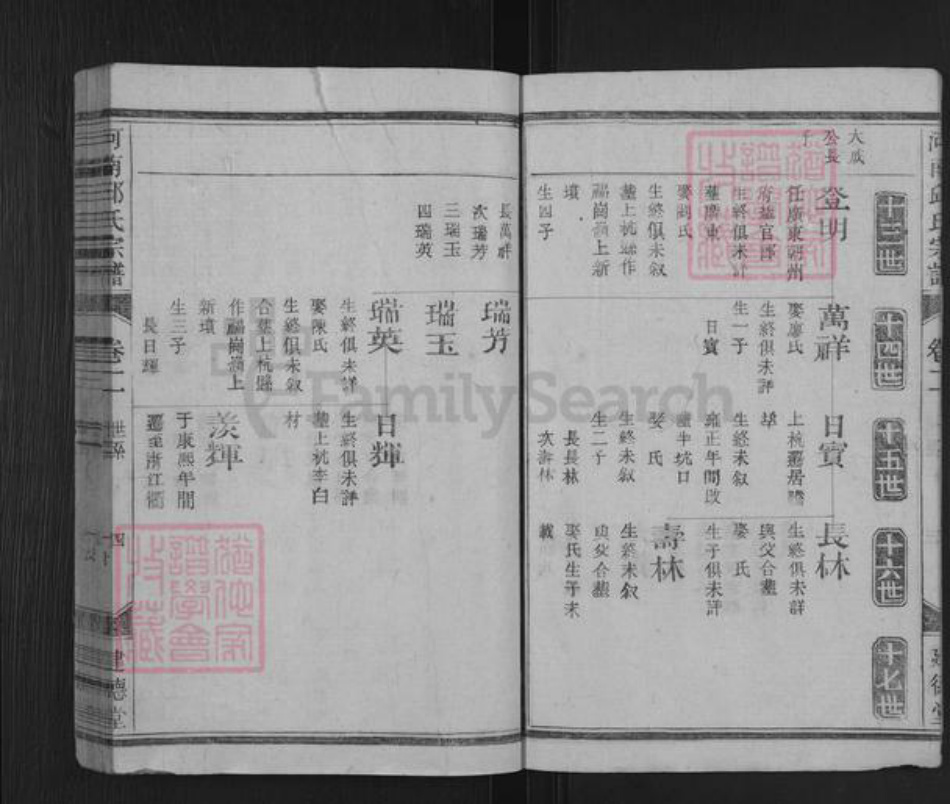 十三世
十四世
十五世
十六世
十七世
大成
公長
子
登明
任廣東潮州
生終俱未詳
葬廣東
生終俱未叙
葬上杭縣作
福崗嶺上新
墳
生四子
長萬祥
次瑞芳
三瑞玉
四瑞英
萬祥
娶廖氏
生終俱未詳
生一子
日賓
瑞芳
瑞玉
瑞英
生終俱未詳
娶陳氏
生終俱未叙
合葬上杭縣
作福崗嶺上
新墳
生三子
長日輝
日賓
上杭遷居
生終未叙
雍正年間改
葬半坑口
娶 氏
生終未叙
生二子
長長林
次壽林
日輝
生終俱未詳
葬上杭李白
材
羨輝
于康熙年間
遷至浙江衢
長林
生終俱未詳
與父合葬
娶 氏
生子俱未詳
壽林
生終未叙
與父合葬
娶氏生子未
載
河南邱氏宗譜
卷二
世系
四
建德堂
猶他家
譜學會
收藏
FamilySearch